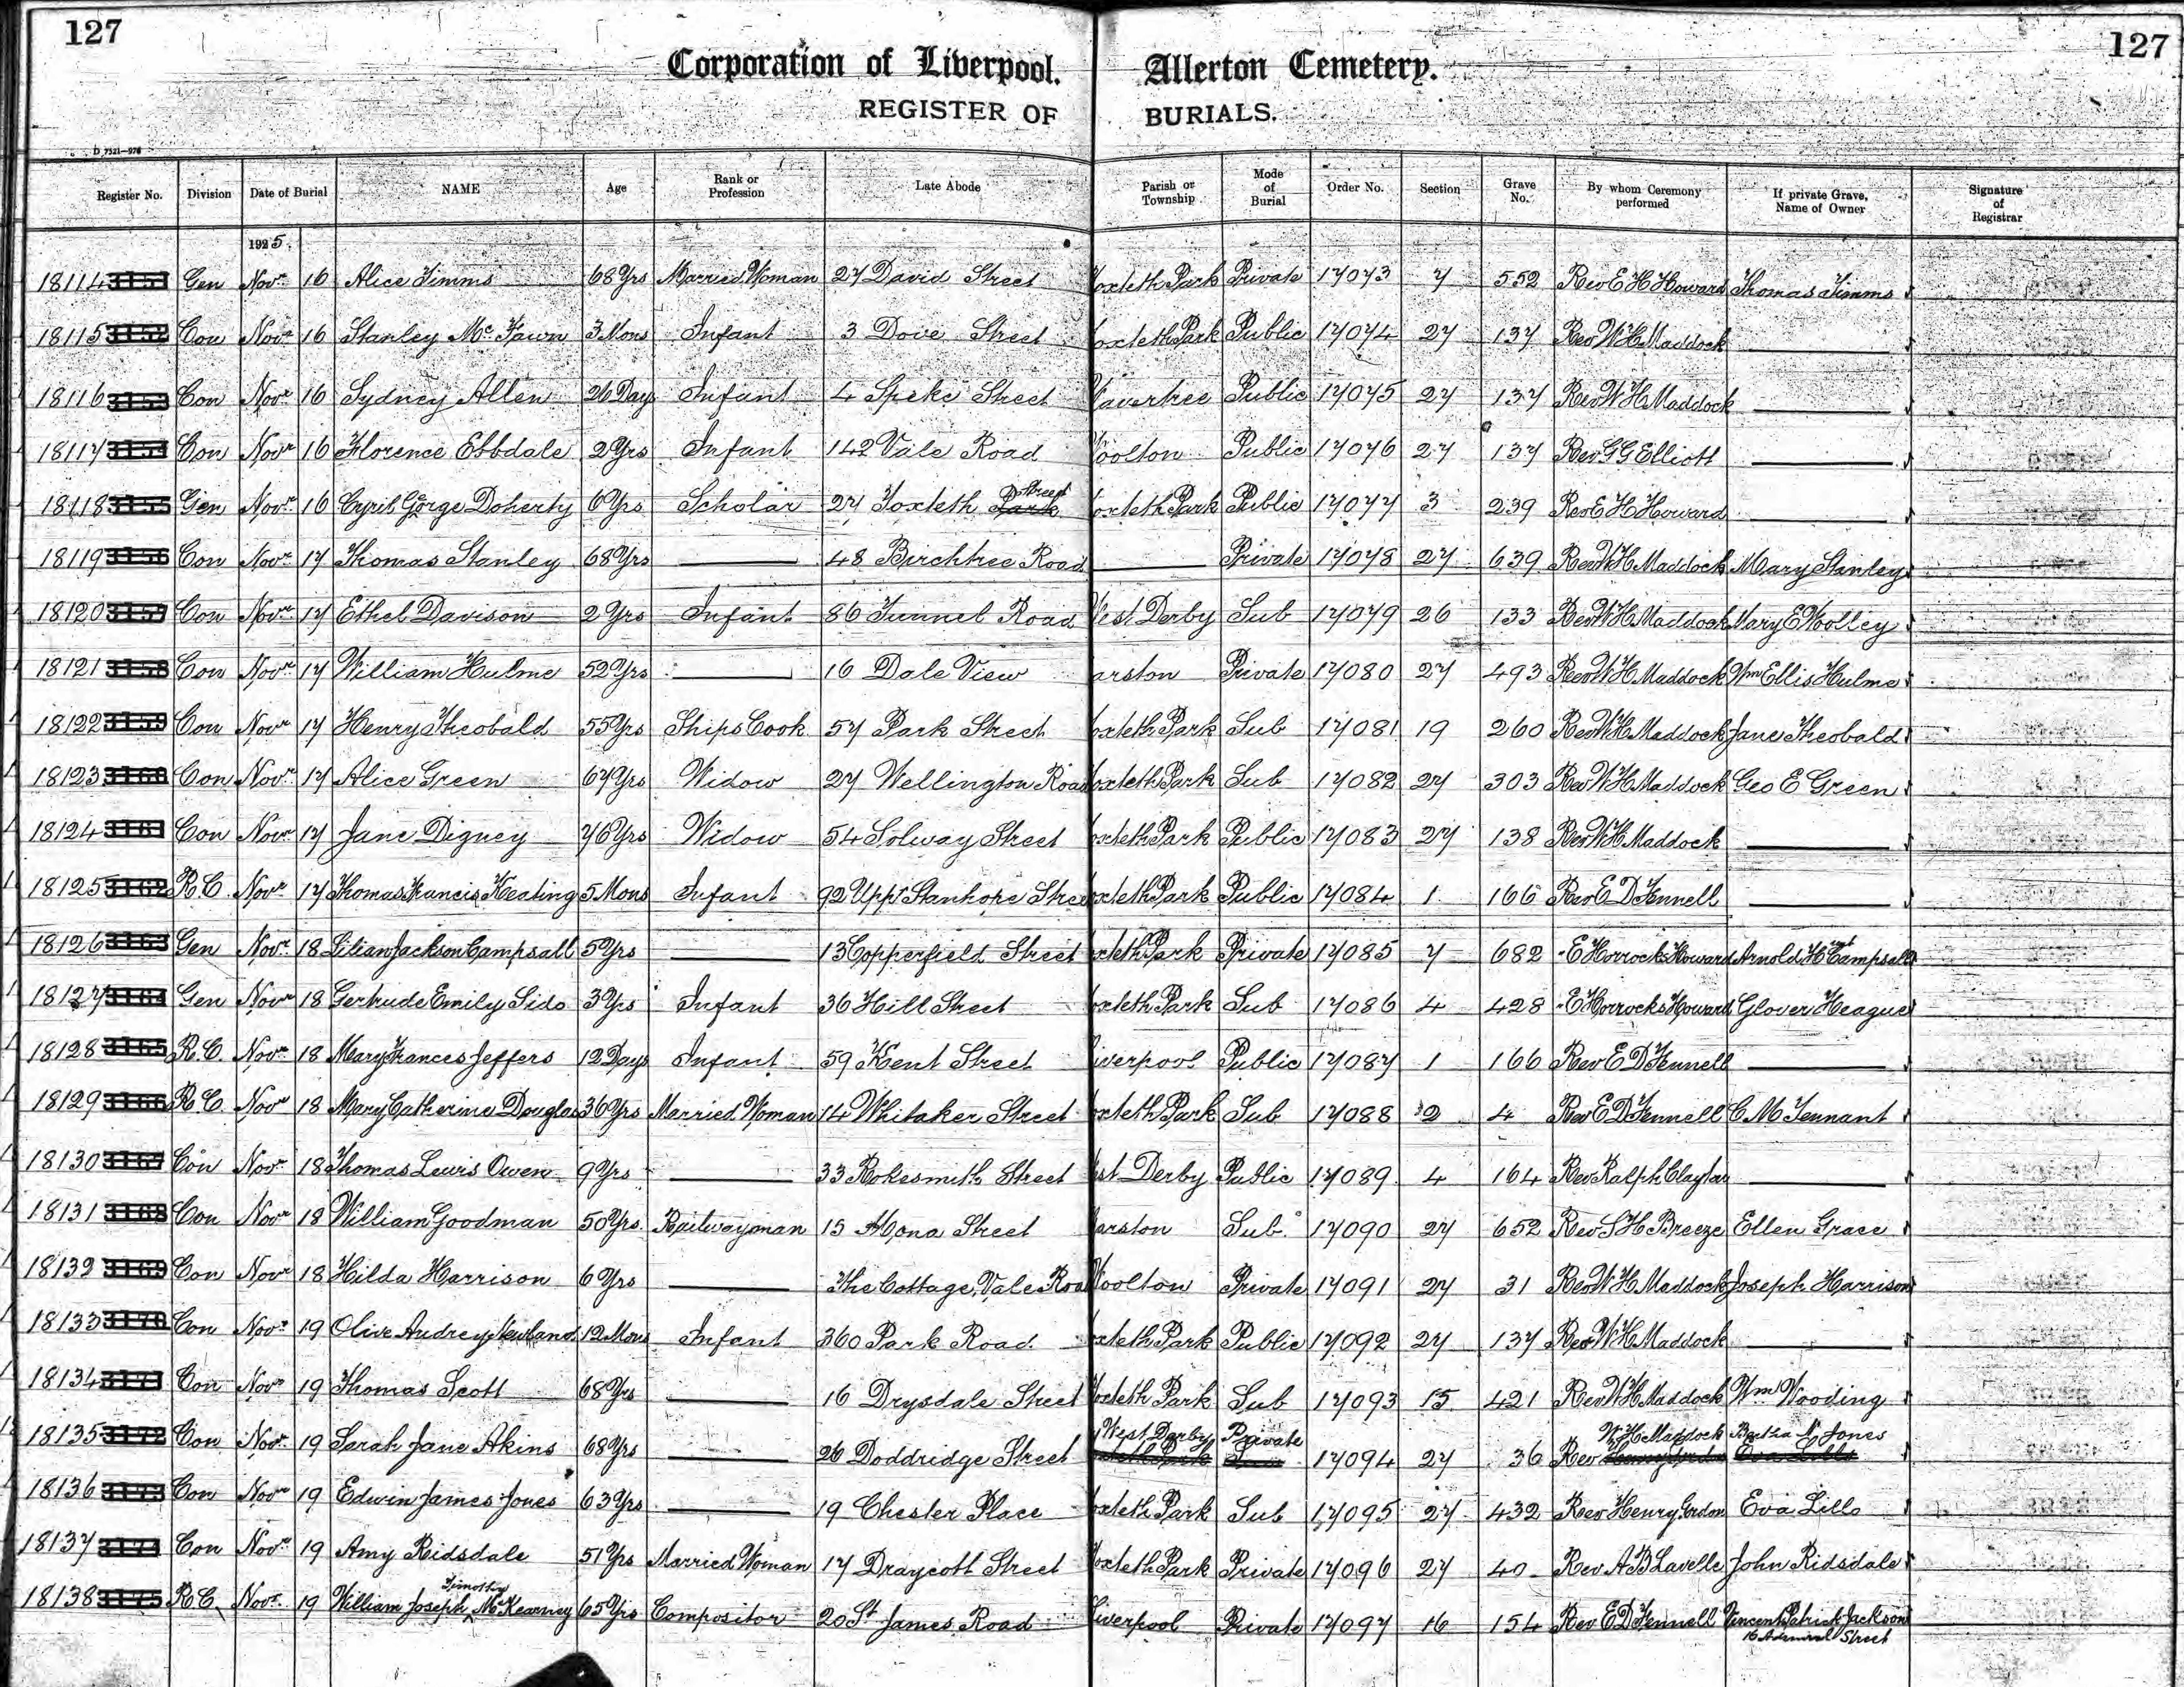 127
127
Corporation of Liverpool. Allerton Cemetery.
REGISTER OF BURIALS.
D 7521—976
Register No. Division Date of Burial NAME Age Rank or Profession Late Abode Parish or Township Mode of Burial Order No. Section Grave No. By whom Ceremony performed If private Grave, Name of Owner Signature of Registrar
1925
18114 3151 Gen Novr 16 Alice Timms 68 Yrs Married Woman 27 David Street oxteth Park Private 17073 7 552 Rev E H Howard Thomas Timms
18115 3152 Con Novr 16 Stanley Mc Fawn 3 Mons Infant 3 Dove Street oxteth Park Public 17074 27 137 Rev W H Maddock
18116 3153 Con Novr 16 Sydney Allen 26 Days Infant 4 Speke Street Wavertree Public 17075 27 137 Rev W H Maddock
18117 3154 Con Novr 16 Florence Ebbdale 2 Yrs Infant 142 Vale Road Woolton Public 17076 27 137 Rev G G Elliott
18118 3155 Gen Novr 16 Cyril Gorge Doherty 6 Yrs Scholar 27 Toxteth Park Street oxteth Park Public 17077 3 239 Rev E H Howard
18119 3156 Con Novr 17 Thomas Stanley 68 Yrs 48 Birchtree Road Private 17078 27 639 Rev W H Maddock Mary Stanley
18120 3157 Con Novr 17 Ethel Davison 2 Yrs Infant 86 Tunnel Road West Derby Sub 17079 26 133 Rev W H Maddock Mary E Woolley
18121 3158 Con Novr 17 William Hulme 52 Yrs 16 Dale View arston Private 17080 27 493 Rev W H Maddock Wm Ellis Hulme
18122 3159 Con Novr 17 Henry Theobald 55 Yrs Ships Cook 57 Park Street oxteth Park Sub 17081 19 260 Rev W H Maddock Jane Theobald
18123 3160 Con Novr 17 Alice Green 67 Yrs Widow 27 Wellington Road oxteth Park Sub 17082 27 303 Rev W H Maddock Geo E Green
18124 3161 Con Novr 17 Jane Digney 76 Yrs Widow 54 Solway Street oxteth Park Public 17083 27 138 Rev W H Maddock
18125 3162 R.C. Novr 17 Thomas Francis Keating 5 Mons Infant 92 Uppr Stanhope Stree oxteth Park Public 17084 1 166 Rev E D Fennell
18126 3163 Gen Novr 18 Lilian Jackson Campsall 5 Yrs 13 Copperfield Street oxteth Park Private 17085 7 682 E Horrocks Howard Arnold H Campsall
18127 3164 Gen Novr 18 Gertrude Emily Sids 3 Yrs Infant 36 Hill Street oxteth Park Sub 17086 4 428 E Horrocks Howard Glover Heague
18128 3165 R.C. Novr 18 Mary Frances Jeffers 12 Days Infant 59 Kent Street iverpool Public 17087 1 166 Rev E D Fennell
18129 3166 R.C. Novr 18 Mary Catherine Douglas 36 Yrs Married Woman 14 Whitaker Street oxteth Park Sub 17088 2 4 Rev E D Fennell C. M Tennant
18130 3167 Con Novr 18 Thomas Lewis Owen 9 Yrs 33 Rokesmith Street est Derby Public 17089 4 164 Rev Ralph Clayton
18131 3168 Con Novr 18 William Goodman 50 Yrs Railwayman 15 Mona Street arston Sub 17090 27 652 Rev S H Breeze Ellen Grace
18132 3169 Con Novr 18 Hilda Harrison 6 Yrs The Cottage, Vale Road Woolton Private 17091 27 31 Rev W H Maddock Joseph Harrison
18133 3170 Con Novr 19 Olive Audrey Newland 12 Mons Infant 360 Park Road oxteth Park Public 17092 27 137 Rev W H Maddock
18134 3171 Con Novr 19 Thomas Scott 68 Yrs 16 Drysdale Street oxteth Park Sub 17093 15 421 Rev W H Maddock Wm Wooding
18135 3172 Con Novr 19 Sarah Jane Akins 68 Yrs 26 Doddridge Street West Derby Private 17094 27 36 Rev W. H. Maddock Bertha Jones Eva Lills
18136 3173 Con Novr 19 Edwin James Jones 63 Yrs 19 Chester Place oxteth Park Sub 17095 27 432 Rev Henry Gordon Eva Lills
18137 3174 Con Novr 19 Amy Ridsdale 51 Yrs Married Woman 17 Draycott Street oxteth Park Private 17096 27 40 Rev A B Lavelle John Ridsdale
18138 3175 R.C. Novr 19 William Joseph Timothy McKearney 65 Yrs Compositor 20 St James Road Liverpool Private 17097 16 154 Rev E D Fennell Vincent Patrick Jackson
16 Admiral Street